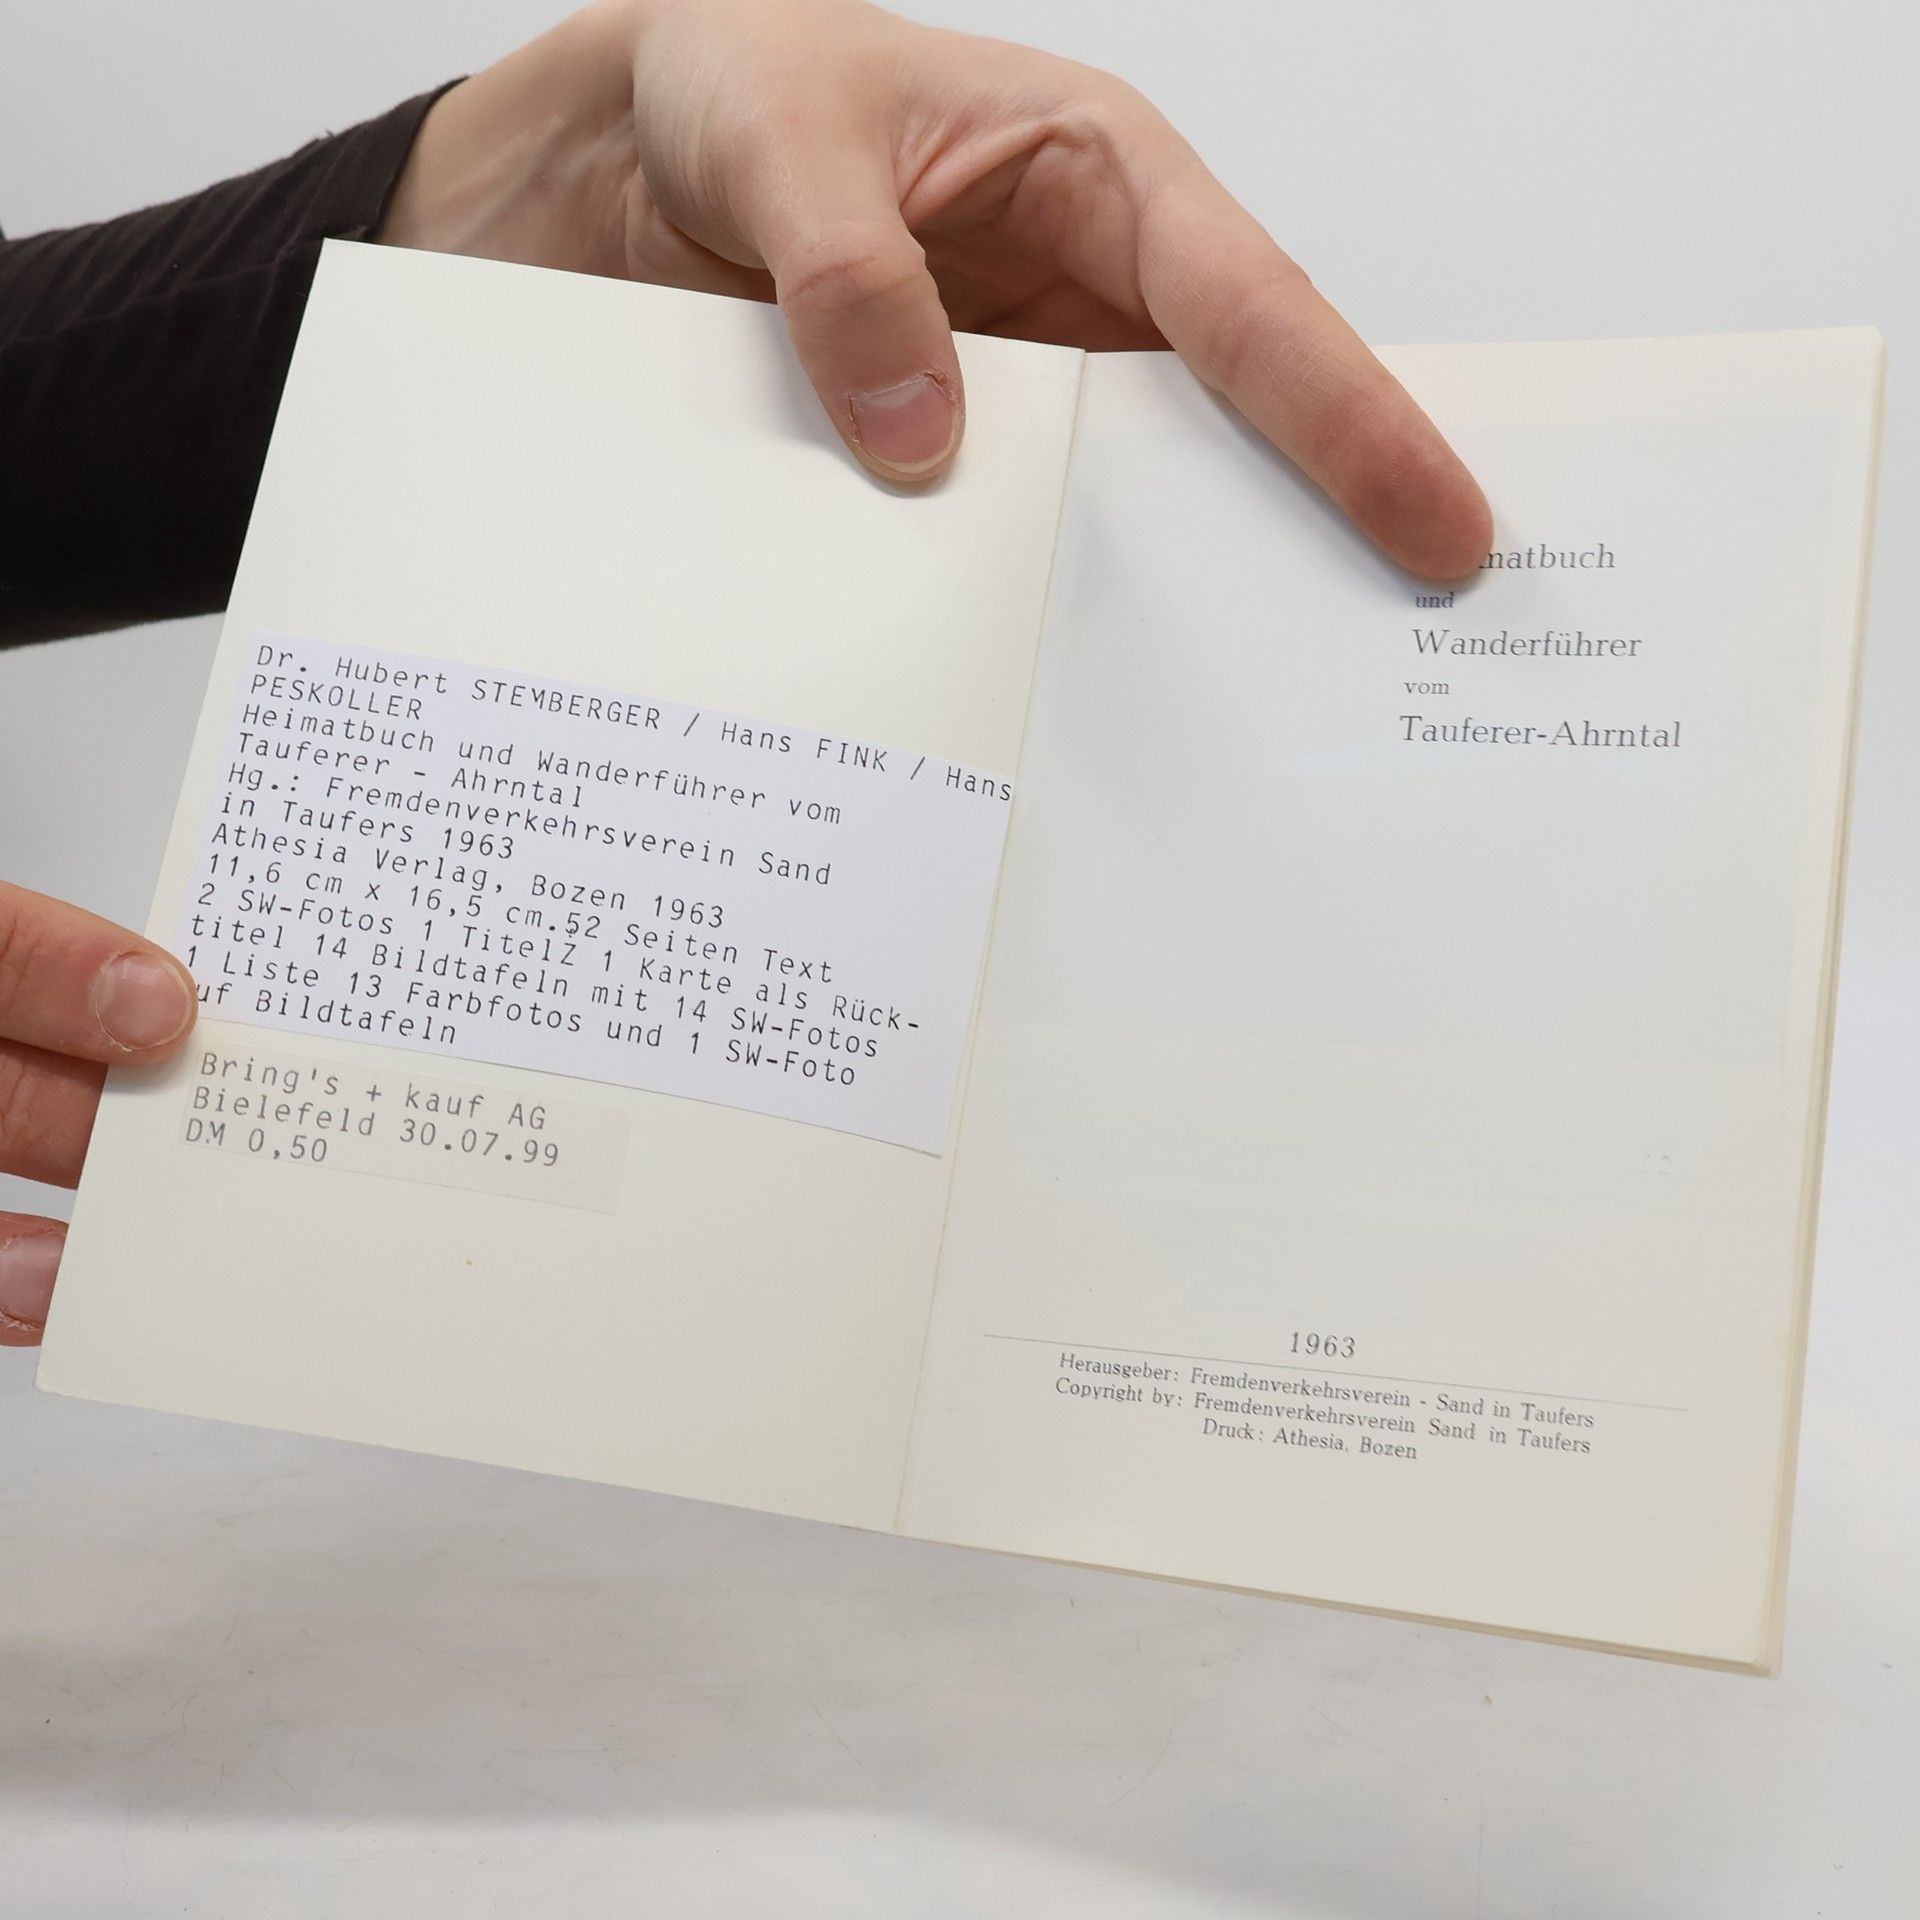 Dr. Hubert STEMBERGER / Hans FINK / Hans
PESKOLLER
Heimatbuch und Wanderführer vom
Tauferer - Ahrntal
Hg.: Fremdenverkehrsverein Sand
in Taufers 1963
Athesia Verlag, Bozen 1963
11,6 cm x 16,5 cm.52 Seiten Text
2 SW-Fotos 1 TitelŻ 1 Karte als Rück-
titel 14 Bildtafeln mit 14 SW-Fotos
1 Liste 13 Farbfotos und 1 SW-Foto
uf Bildtafeln
Bring's + kauf AG
Bielefeld 30.07.99
DM 0,50
matbuch
und
Wanderführer
vom
Tauferer-Ahrntal
1963
Herausgeber: Fremdenverkehrsverein - Sand in Taufers
Copyright by: Fremdenverkehrsverein Sand in Taufers
Druck: Athesia, Bozen